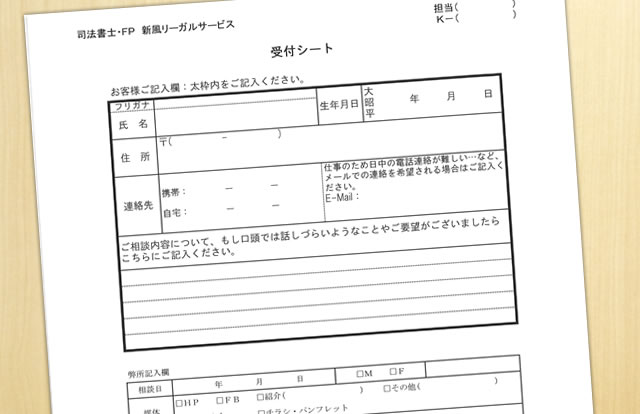 司法書士・FP 新風リーガルサービス
担当( )
K－( )
受付シート
お客様ご記入欄：太枠内をご記入ください。
フリガナ
氏 名
生年月日
大
昭
平
年 月 日
住 所
〒( － )
連絡先
携帯： － －
自宅： － －
仕事のため日中の電話連絡が難しい…など、
メールでの連絡を希望される場合はご記入く
ださい。
E-Mail：
ご相談内容について、もし口頭では話しづらいようなことやご要望がございましたら
こちらにご記入ください。
弊所記入欄
相談日
年 月 日
□M □F
媒体
□HP □FB □紹介( ) □その他( )
□チラシ・パンフレット